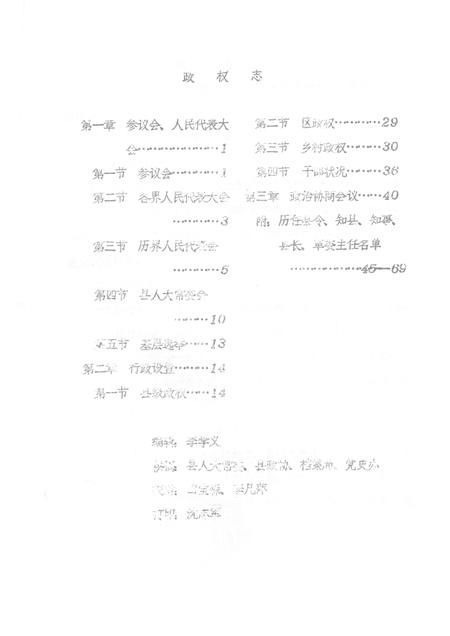 政 权 志
第一章 参议会、人民代表大
会……………………1
第一节 参议会…………1
第二节 各界人民代表大会
…………3
第三节 历界人民代表会
…………5
第四节 县人大常委会
…………10
第五节 基层选举………13
第二章 行政设置………14
第一节 县级政权………14
第二节 区政权…………29
第三节 乡村政权………30
第四节 干部状况………36
第三章 政治协商会议……40
附：历任县令、知县、知事、
县长、革委主任名单
……………45—69
编辑：李学义
供稿：县人大常委、县政协、档案、党史办